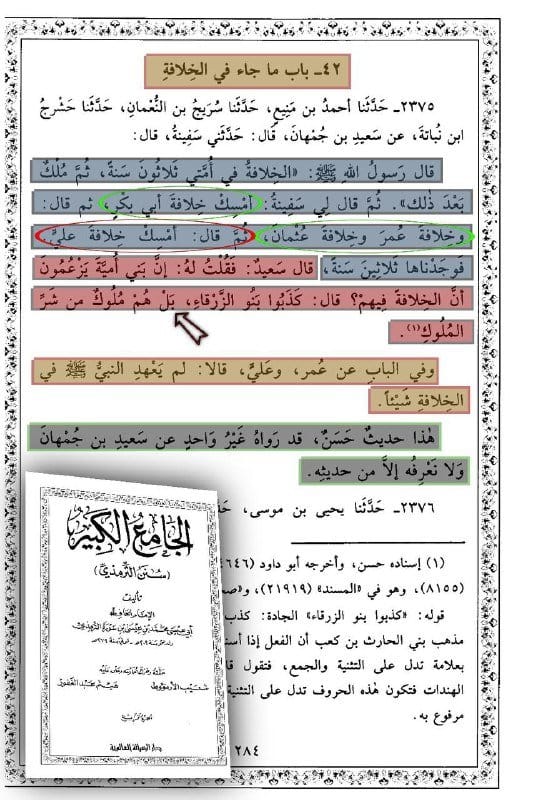 ٤٢ـ باب ما جاء في الخِلافةِ
٢٣٧٥ـ حَدَّثَنا أحمدُ بن مَنِيعٍ، حَدَّثَنا سُرَيجُ بن النُّعمانِ، حَدَّثَنا حَشْرجُ
ابن نُباتةَ، عن سَعيدِ بن جُمْهانَ، قال: حَدَّثَني سَفِينةُ، قال:
قال رَسولُ اللهِ ﷺ: «الخِلافةُ في أُمَّتي ثَلاثُونَ سَنةً، ثُمَّ مُلْكٌ
بَعْدَ ذٰلك». ثُمَّ قال لِي سَفِينةُ: أمْسِكْ خِلافةَ أبي بكْرٍ، ثم قال:
وخِلافةَ عُمرَ وخِلافةَ عُثْمانَ، ثُمَّ قال: أمْسِكْ خِلافةَ عليٍّ،
فَوجَدْناها ثلاثِينَ سَنةً، قال سَعيدٌ: فَقُلْتُ لهُ: إنَّ بَني أُميَّةَ يَزْعُمُونَ
أنَّ الخِلافةَ فِيهمْ؟ قال: كَذَبُوا بَنُو الزَّرْقاءِ، بَلْ هُمْ مُلُوكٌ من شَرِّ
المُلُوكِ(١).
وفي البابِ عن عُمر، وعَليٍّ، قالا: لم يَعْهدِ النبيُّ ﷺ في
الخِلافةِ شَيْئاً.
هٰذا حديثٌ حَسَنٌ، قد رَواهُ غَيْرُ واحدٍ عن سَعيدِ بن جُمْهانَ
وَلا نَعْرِفُه إلاَّ من حديثِه.
٢٣٧٦ـ حَدَّثَنا يحيى بن موسى،
(١) إسناده حسن، وأخرجه أبو داود
(٨١٥٥)، وهو في «المسند» (٢١٩١٩)،
قوله: «كذبوا بنو الزرقاء» الجادة: كذب
مذهب بني الحارث بن كعب أن الفعل إذا
بعلامة تدل على التثنية والجمع، فتقول
الهندات فتكون هٰذه الحروف تدل على
مرفوع به.
٢٨٤
الجامع الكبير
(سنن الترمذي)
تأليف
الإمام الحافظ
أبي عيسى محمد بن عيسى بن سورة الترمذي
شعيب الأرنؤوط
هيثم عبد الغفور
دار الرسالة العالمية